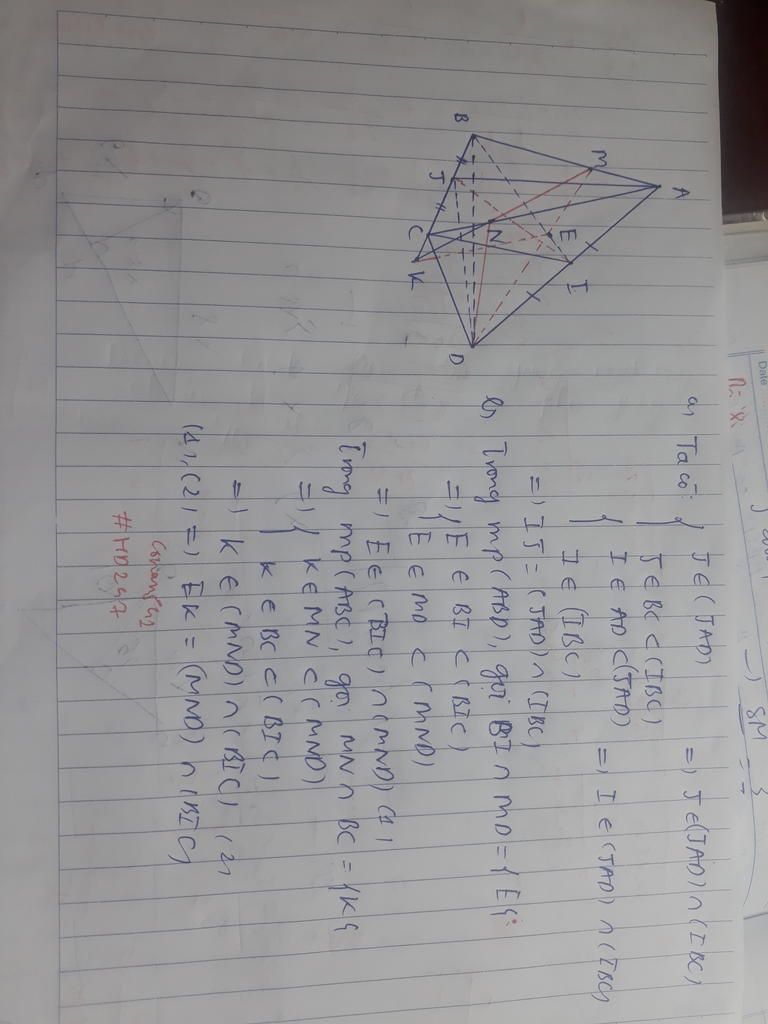 A
M
E
I
B
J
N
C
K
D
a, Ta có: { J ∈ (JAD)
J ∈ BC ⊂ (IBC) => J ∈ (JAD) ∩ (IBC)
{ I ∈ AD ⊂ (JAD)
I ∈ (IBC) => I ∈ (JAD) ∩ (IBC)
=> IJ = (JAD) ∩ (IBC)
b, Trong mp(ABD), gọi BI ∩ MD = {E}
=> { E ∈ BI ⊂ (BIC)
E ∈ MD ⊂ (MND)
=> E ∈ (BIC) ∩ (MND) (1)
Trong mp(ABC), gọi MN ∩ BC = {K}
=> { K ∈ MN ⊂ (MND)
K ∈ BC ⊂ (BIC)
=> K ∈ (MND) ∩ (BIC) (2)
(1), (2) => EK = (MND) ∩ (BIC)
#HD247
Date